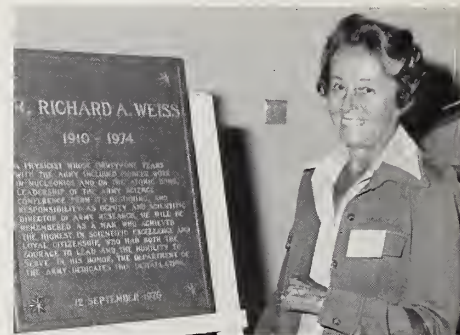 R. RICHARD A. WEISS
1910 - 1974
A PHYSICIST WHOSE THIRTY-ONE YEARS
WITH THE ARMY INCLUDED PIONEER WORK
IN NUCLEONICS AND ON THE ATOMIC BOMB,
LEADERSHIP OF THE ARMY SCIENCE
CONFERENCE FROM ITS BEGINNING, AND
RESPONSIBILITY AS DEPUTY AND SCIENTIFIC
DIRECTOR OF ARMY RESEARCH, HE WILL BE
REMEMBERED AS A MAN WHO ACHIEVED
THE HIGHEST IN SCIENTIFIC EXCELLENCE AND
LOYAL CITIZENSHIP, WHO HAD BOTH THE
COURAGE TO LEAD AND THE HUMILITY TO
SERVE. IN HIS HONOR, THE DEPARTMENT OF
THE ARMY DEDICATES THIS
12 SEPTEMBER 1975